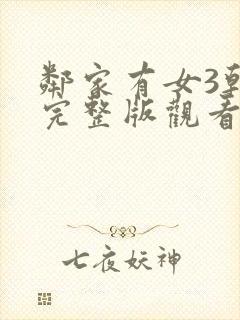 鄰家有女3
完整版觀看
七夜妖神